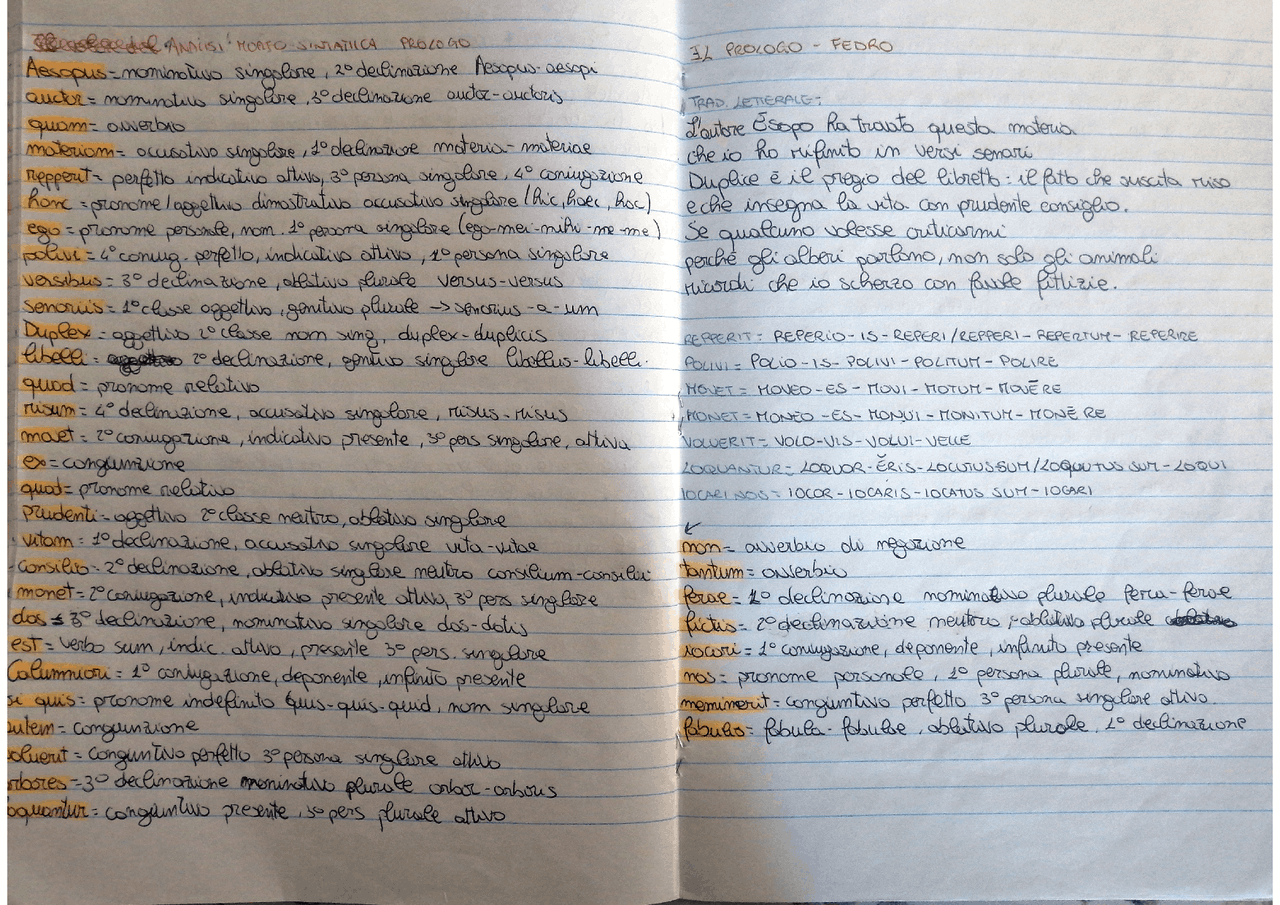 ANALISI MORFO SINTATTICA PROLOGO
Aesopus= nominativo singolare, 2° declinazione Aesopus-aesopi
auctor= nominativo singolare, 3° declinazione auctor-auctoris
quam= avverbio
materiam= accusativo singolare, 1° declinazione materia-materiae
repperit= perfetto indicativo attivo, 3° persona singolare, 4° coniugazione
hanc= pronome/aggettivo dimostrativo accusativo singolare (hic, haec, hoc)
ego= pronome personale, nom. 1° persona singolare (ego-mei-mihi-me-me)
polivi= 4° coniug. perfetto, indicativo attivo, 1° persona singolare
versibus= 3° declinazione, ablativo plurale versus-versus
senariis= 1° classe aggettivo, genitivo plurale → senarius-a-um
Duplex= aggettivo 2° classe nom sing, duplex-duplicis
libelli= 2° declinazione, gentivo singolare libellus-libelli.
quod= pronome relativo
risum= 4° declinazione, accusativo singolare, risus-risus
movet= 2° coniugazione, indicativo presente, 3° pers singolare, attiva
et= congiunzione
quod= pronome relativo
prudenti= aggettivo 2° classe neutro, ablativo singolare
vitam= 1° declinazione, accusativo singolare vita-vitae
consilio= 2° declinazione, ablativo singolare neutro consilium-consilii
monet= 2° coniugazione, indicativo presente attivo, 3° pers singolare
dos= 3° declinazione, nominativo singolare dos-dotis
est= verbo sum, indic. attivo, presente 3° pers. singolare
Calumniari= 1° coniugazione, deponente, infinito presente
si quis= pronome indefinito quis-quis-quid, nom singolare
autem= congiunzione
oluerit= congiuntivo perfetto 3° persona singolare attivo
rbores= 3° declinazione nominativo plurale arbor-arboris
oquantur= congiuntivo presente, 3° pers plurale attivo
IL PROLOGO - FEDRO
TRAD. LETTERALE:
L'autore Esopo ha trovato questa materia
che io ho rifinito in versi senari
Duplice è il pregio del libretto: il fatto che suscita riso
e che insegna la vita con prudente consiglio.
Se qualcuno volesse criticarmi
perché gli alberi parlano, non solo gli animali
ricordi che io scherzo con favole fittizie.
REPPERIT= REPERIO-IS-REPERI/REPPERI-REPERTUM-REPERIRE
POLIVI= POLIO-IS-POLIVI-POLITUM-POLIRE
MOVET= MOVEO-ES-MOVI-MOTUM-MOVĒRE
MONET= MONEO-ES-MONUI-MONITUM-MONĒRE
VOLUERIT= VOLO-VIS-VOLUI-VELLE
LOQUANTUR= LOQUOR-ĔRIS-LOCUTUS SUM/LOQUUTUS SUM-LOQUI
IOCARI NOS= IOCOR-IOCARIS-IOCATUS SUM-IOCARI
non= avverbio di negazione
tantum= avverbio
ferae= 1° declinazione nominativo plurale fera-ferae
fictis= 2° declinazione neutro, ablativo plurale
iocari= 1° coniugazione, deponente, infinito presente
nos= pronome personale, 1° persona plurale, nominativo
meminerit= congiuntivo perfetto 3° persona singolare attivo
fabulis= fabula-fabulae, ablativo plurale, 1° declinazione